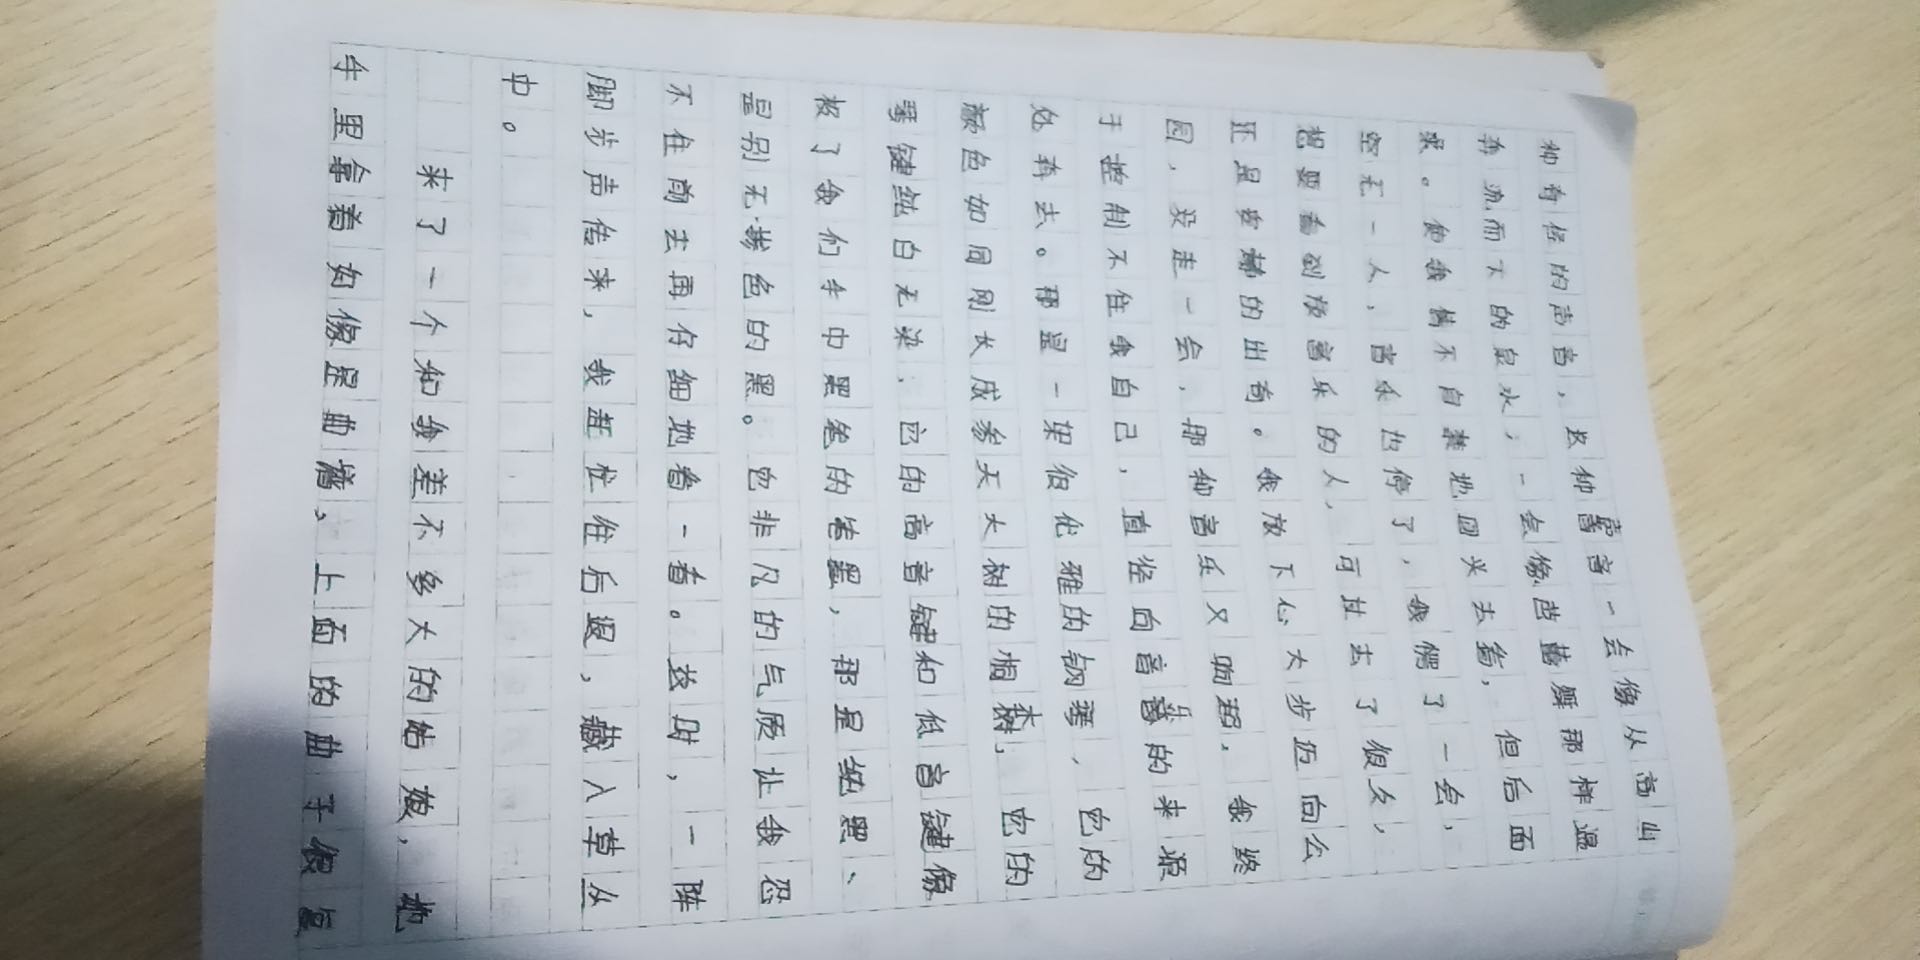 种奇怪的声音，这种声音一会像从高山
奔流而下的泉水，一会像芭蕾舞那样温
柔。使我情不自禁地回头去看，但后面
空无一人，音乐也停了，我愣了一会，
想要看到演音乐的人，可过去了很久，
还是安静的出奇。我放下心大步迈向公
园，没走一会，那种音乐又响起，我终
于控制不住我自己，直径向音乐的来源
处奔去。那是一架很优雅的钢琴，它的
颜色如同刚长成参天大树的桐树，它的
琴键纯白无染，它的高音键和低音键像
极了我们手中黑色的笔墨，那是纯黑、
是别无杂色的黑。它非凡的气质让我忍
不住前去再仔细地看一看。这时，一阵
脚步声传来，我赶忙往后退，藏入草丛
中。
来了一个和我差不多大的姑娘，她
手里拿着好像是曲谱，上面的曲子很复